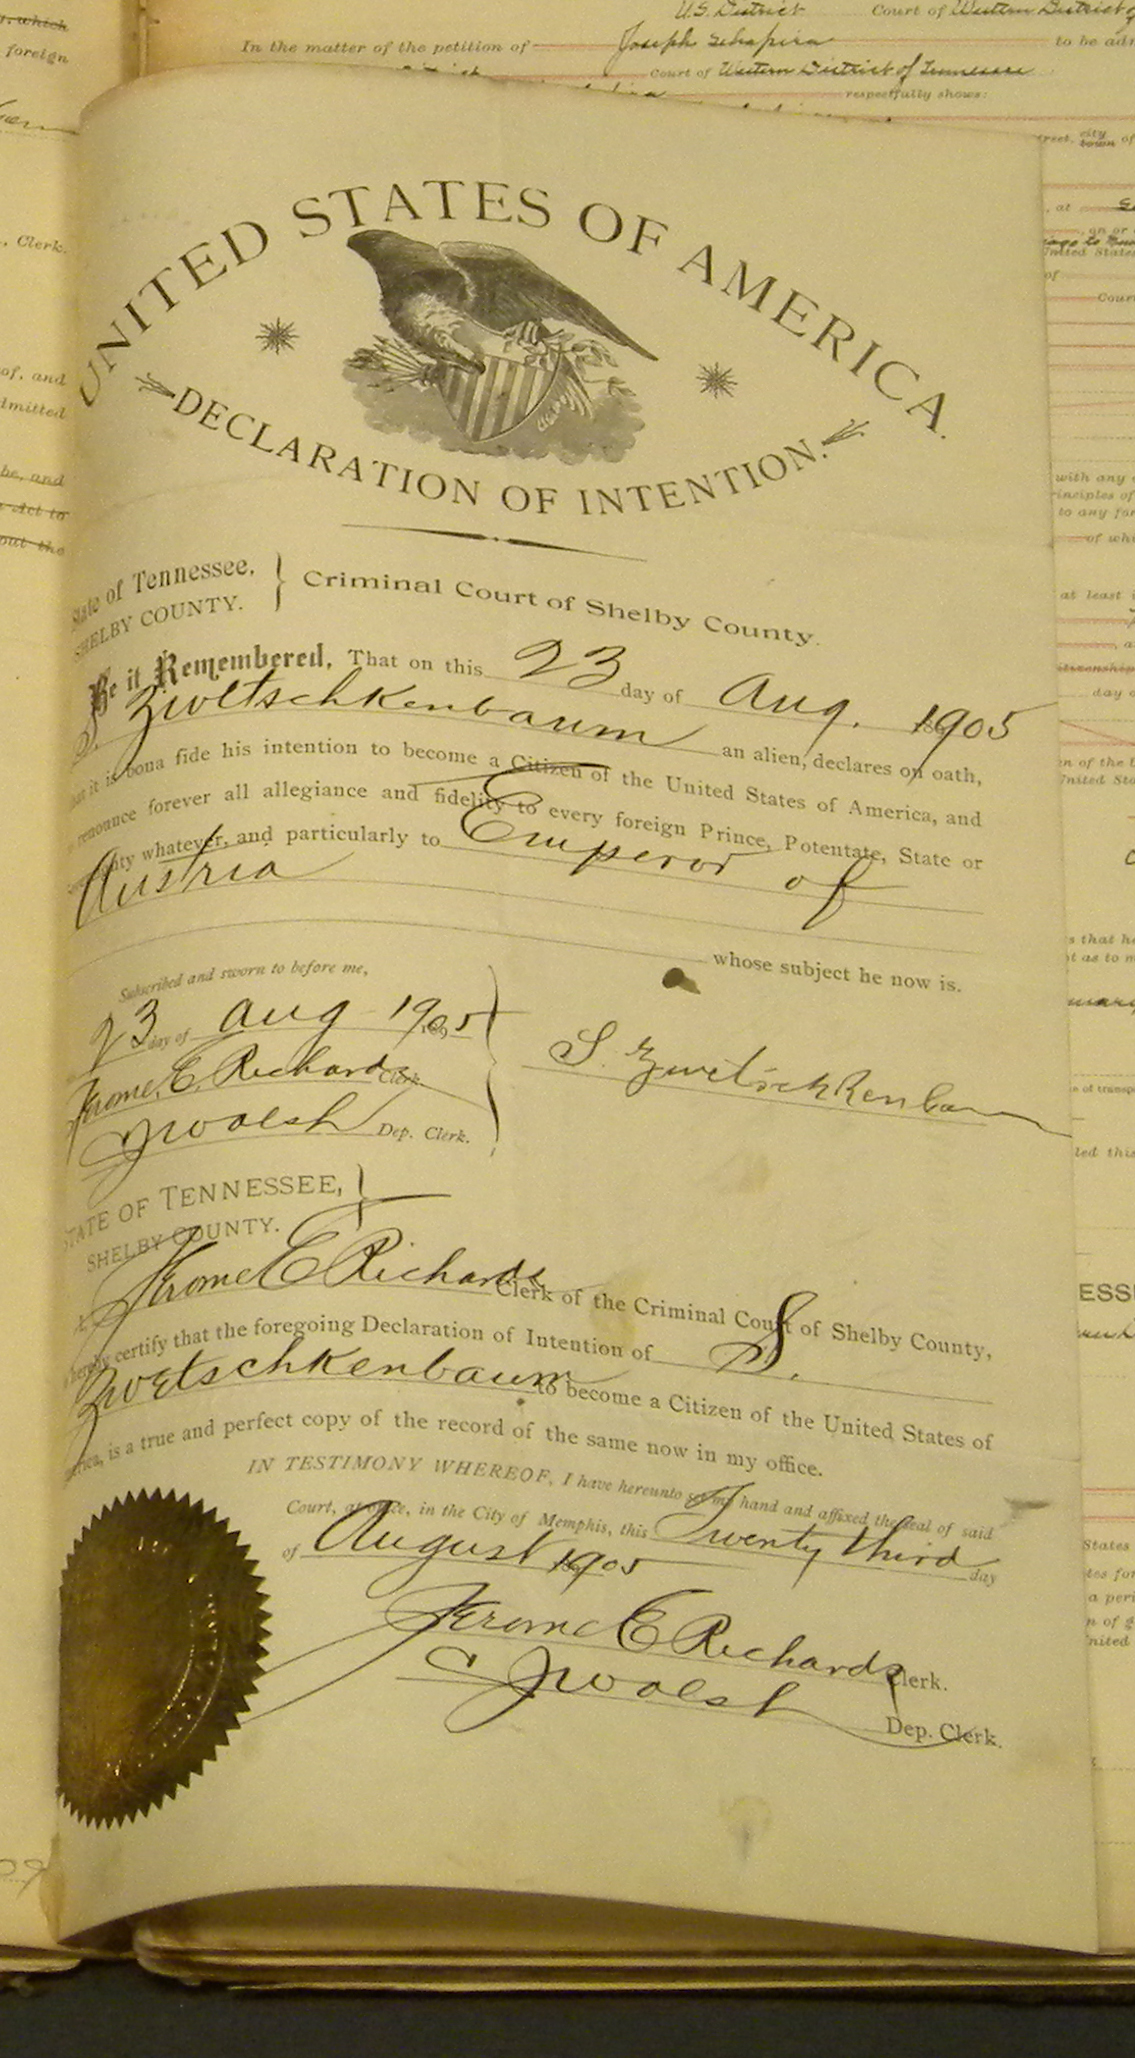 which
foreign
Clerk.
of, and
dmitted
be, and
Act to
out the
U.S. District Court of Western District of
In the matter of the petition of Joseph Schapira to be
Court of Western District of Tennessee
respectfully shows:
UNITED STATES OF AMERICA.
DECLARATION OF INTENTION.
State of Tennessee,
SHELBY COUNTY.
Criminal Court of Shelby County.
Be it Remembered, That on this 23 day of Aug. 1905
S. Zwetschkenbaum an alien, declares on oath,
that it is bona fide his intention to become a Citizen of the United States of America, and
renounce forever all allegiance and fidelity to every foreign Prince, Potentate, State or
whatever, and particularly to Emperor of
Austria
whose subject he now is.
Subscribed and sworn to before me,
23 day of Aug 1905
Jerome E. Richards Clerk.
J Walsh Dep. Clerk.
S. Zwetschkenbaum
STATE OF TENNESSEE,
SHELBY COUNTY.
I, Jerome E Richards Clerk of the Criminal Court of Shelby County,
hereby certify that the foregoing Declaration of Intention of S.
Zwetschkenbaum to become a Citizen of the United States of
America, is a true and perfect copy of the record of the same now in my office.
IN TESTIMONY WHEREOF, I have hereunto set my hand and affixed the seal of said
Court, at office, in the City of Memphis, this Twenty third day
of August 1905
Jerome E Richards Clerk.
J Walsh Dep. Clerk.
city
town of
, at
, on or
United States
of
Court
with any
principles of
to any
of
at least
, a
day o
n of the
United Sta
s that he
t as to m
of transp
led this
ESS
States
tes for
a peri
n of g
nited